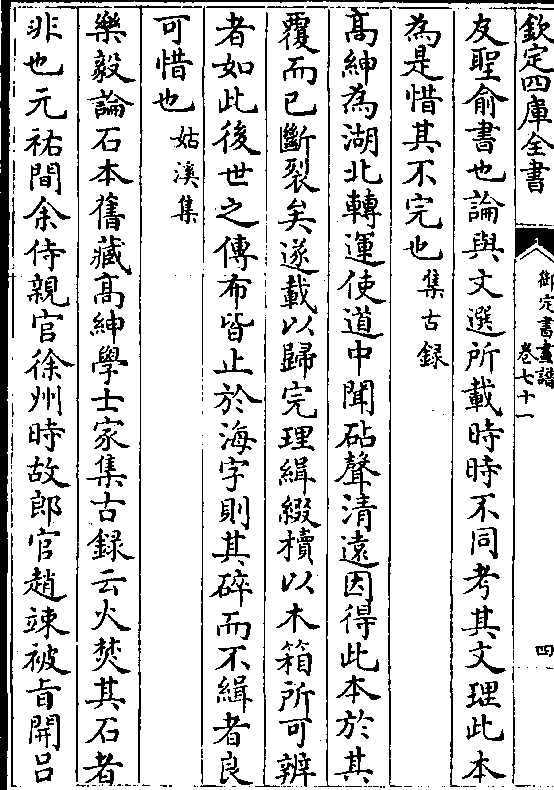 欽定四庫全書
御定書畫譜
卷七十一
四
友聖俞書也論與文選所載時時不同考其文理此本
為是惜其不完也集古録
高紳為湖北轉運使道中聞砧聲清遠因得此本於其
覆而已斷裂矣遂載以歸完理緝綴櫝以木箱所可辨
者如此後世之傳布皆止於海字則其碎而不緝者良
可惜也姑溪集
樂毅論石本舊藏高紳學士家集古録云火焚其石者
非也元祐間余侍親官徐州時故郎官趙竦被旨開吕